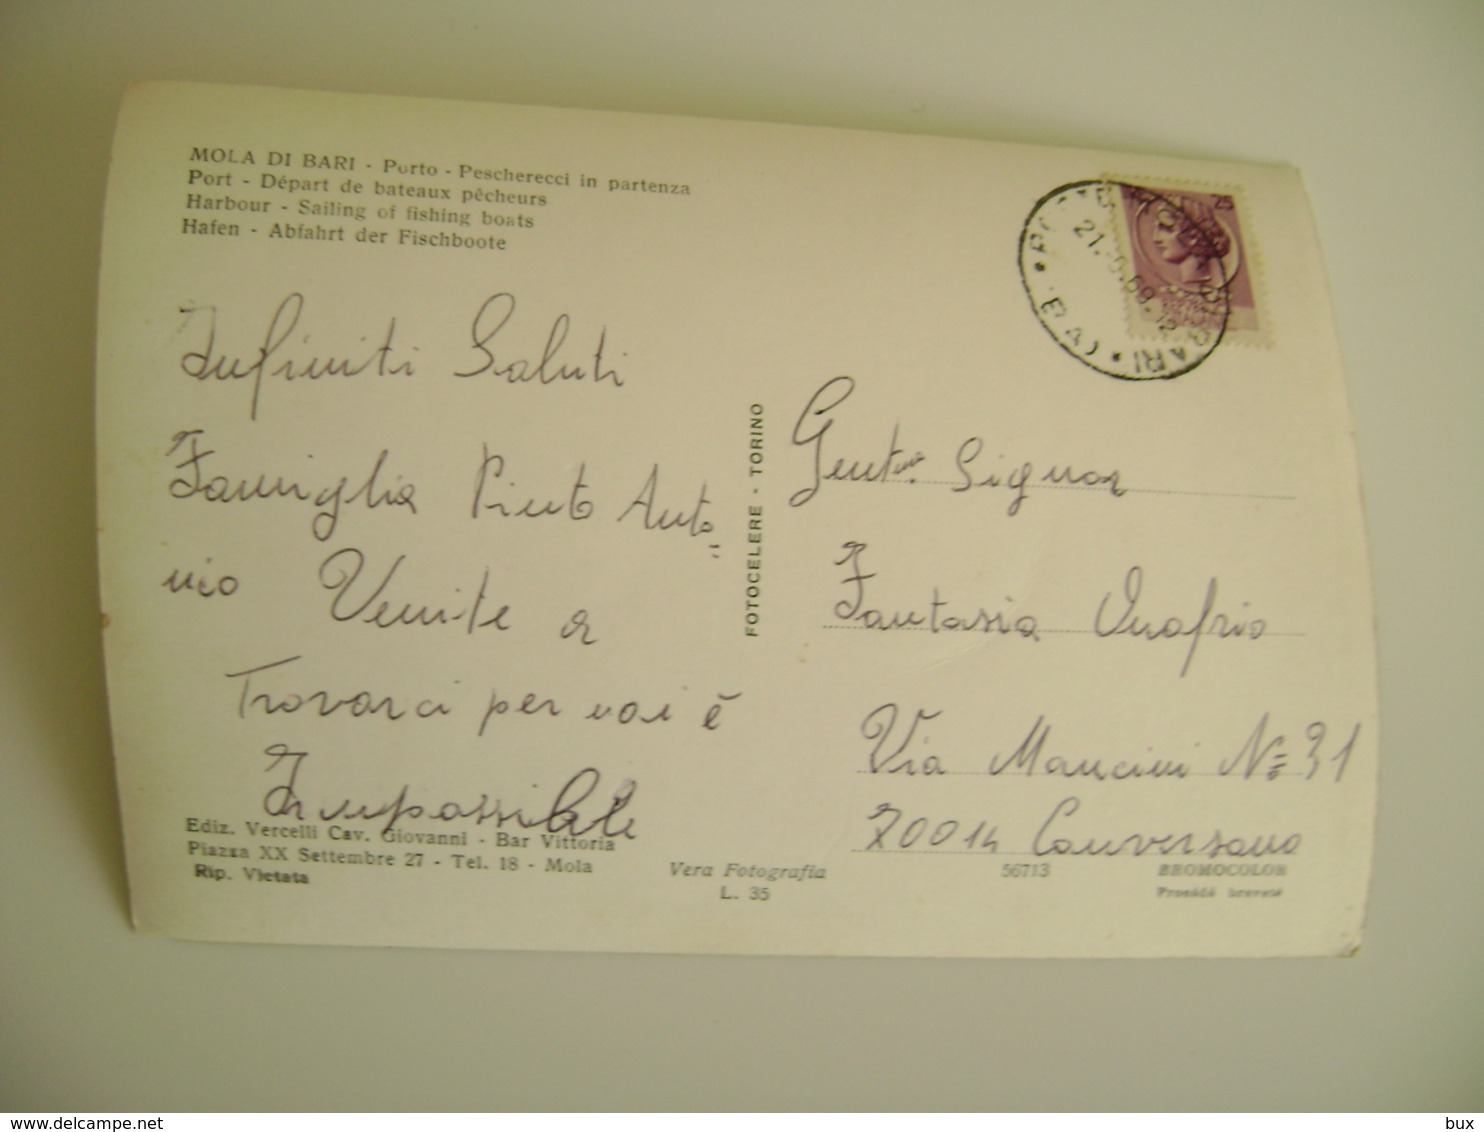 MOLA DI BARI - Porto - Pescherecci in partenza
Port - Départ de bateaux pêcheurs
Harbour - Sailing of fishing boats
Hafen - Abfahrt der Fischboote
25
21. .69.12
BARI * (BA)
Infiniti Saluti
Famiglia Pinto Anto=
nio Venite a
Trovarci per voi è
Impossibile
FOTOCELERE - TORINO
Gent.mo Signor
Fantasia Onofrio
Via Mancini N= 31
70014 Conversano
Ediz. Vercelli Cav. Giovanni - Bar Vittoria
Piazza XX Settembre 27 - Tel. 18 - Mola
Rip. Vietata
Vera Fotografia
L. 35
56713
BROMOCOLOR
Procédé breveté
www.delcampe.net
bux